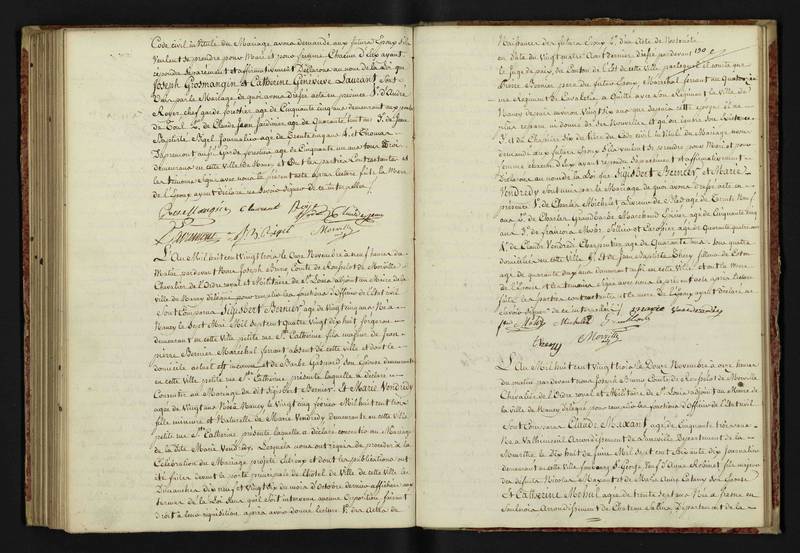 Code civil intitulé du Mariage avons demandé aux futurs Epoux s'ils
Veulent se prendre pour Mari et pour femme Chacun d'Eux ayant
répondu séparément et affirmativement Déclarons au nom de la Loi que
Joseph Grosmangin et Catherine Genevieve Laurant sont
Unis par le Mariage de quoi avons dressé acte en présence 1° d'André
Royer chef garde forestier agé de Cinquante cinq ans demeurant
de Toul 2° de Claude Jean jardinier agé de Quarante huit ans 3° de Jean
Baptiste Rigel journalier agé de Trente cinq ans 4° et Thomas
Garde forestier agé de Cinquante un ans tous trois
demeurans en cette ville de Nancy et Ont les parties Contractantes et
les témoins signé avec nous le présent acte après lecture faite la Mere
de l'Epoux ayant déclaré ne savoir signer de ce interpellée
Grosmangin Laurant Royer
Claude jean
Rigel Morville
L'An Mil huit cent Vingt trois le Onze Novembre à neuf heures du
Matin pardevant Nous Joseph Bruno Comte de Morville
Chevalier de l'Ordre royal et Militaire de St Louis adjoint au Maire de la
Ville de Nancy délégué pour remplir les fonctions d'Officier de l'Etat civil
Sont Comparus Sigisbert Bernier agé de Vingt cinq ans Né à
Nancy le Sept Mai Mil Sept cent Quatre Vingt dix huit forgeron
demeurant en cette Ville petite rue Ste Catherine fils majeur de Jean
pierre Bernier Maréchal ferrant absent de cette ville et dont le
domicile actuel est inconnu et de Barbe son Epouse demeurante
en cette Ville petite rue Ste Catherine présente laquelle a déclaré
Consentir au Mariage du dit Sigisbert Bernier Et Marie Vendredy
agée de Vingt ans Née à Nancy le Vingt cinq février Mil huit cent trois
fille mineure et Naturelle de Marie Vendredy demeurante en cette Ville
petite rue Ste Catherine présente laquelle a déclaré consentir au Mariage
de la Dite Marie Vendredy, Lesquels nous ont requis de procéder à la
Célébration du Mariage projeté Entr'eux et dont les publications ont
été faites devant la porte principale de l'hôtel de Ville de cette Ville les
Dimanches dix neuf et Vingt six du mois d'Octobre dernier affichées aux
termes de la Loi sans qu'il soit intervenu aucune Opposition faisant
droit à leur réquisition après avoir donné lecture 1° des Actes de
190
Naissance des futurs Epoux 2° d'un Acte de Notoriété
en date du Vingt quatre Aout dernier dressé par devant
le Juge de paix du Canton de l'Est de cette Ville par lequel il conste que
Pierre Bernier pere du futur Epoux, Maréchal ferrant au
Regiment de Cavalerie a Quitté avec son Régiment la Ville de
Nancy depuis environ Vingt dix ans que depuis cette époque il n'a
plus reparu ni donné de Ses Nouvelles et qu'on ignore son Existence
3° et du Chapitre Six du titre du Code civil intitulé du Mariage avons
demandé aux futurs Epoux s'ils veulent se prendre pour Mari et pour
femme chacun d'eux ayant répondu séparément et affirmativement
Déclarons au nom de la Loi que Sigisbert Bernier et Marie
Vendredy sont unis par le Mariage de quoi avons dressé acte en
présence 1° de Charles Michelet agé de Trente
ans 2° de Charles Marchand agé de Cinquante
ans 3° de François agé de Quarante
ans 4° de Claude Vendredy Charpentier agé de Quarante ans tous quatre
domiciliés en cette Ville et de Jean Baptiste Thiery
agé de quarante dux ans demeurant aussi en cette ville et ont la mere
de l'Epouse et les témoins signé avec nous le présent acte après lecture
faite les parties contractantes et la mere de l'Epoux ayant déclaré ne
savoir signer de ce interpellés
marie Vendredy
Michelet
Thiery Morville
L'An Mil huit cent Vingt trois le Douze Novembre à onze heures
du matin pardevant nous Joseph Bruno Comte de Morville
Chevalier de l'Ordre royal et Militaire de St Louis adjoint au Maire de
la Ville de Nancy délégué pour remplir les fonctions d'Officier de l'Etat civil
Sont Comparus Claude Maxant agé de Cinquante trois ans
Né à Valhimenil Arrondissement de Lunéville Département de la
Meurthe le Dix huit de Juin Mil Sept cent Soixante Dix Journalier
demeurant en cette Ville faubourg St George Veuf d'Anne fils majeur
des défunts Nicolas Maxant et de Marie Anne son Epouse
Et Catherine Michel agée de trente sept ans Née à fresne en
Saulnois Arrondissement de Chateau Salins Département de la